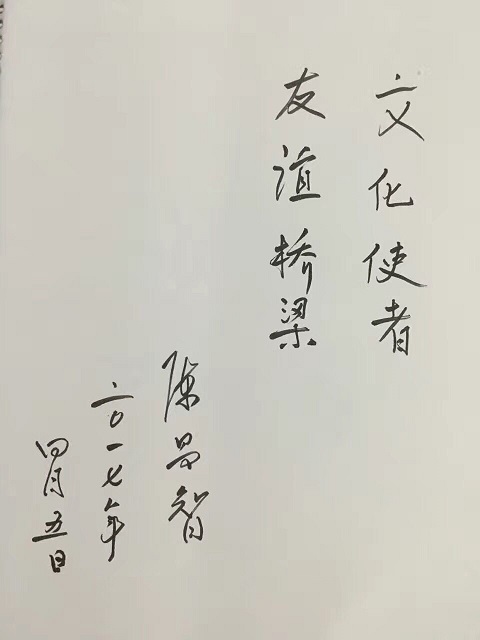 文化使者
友谊桥梁
陈昌智
二〇一七年
四月五日